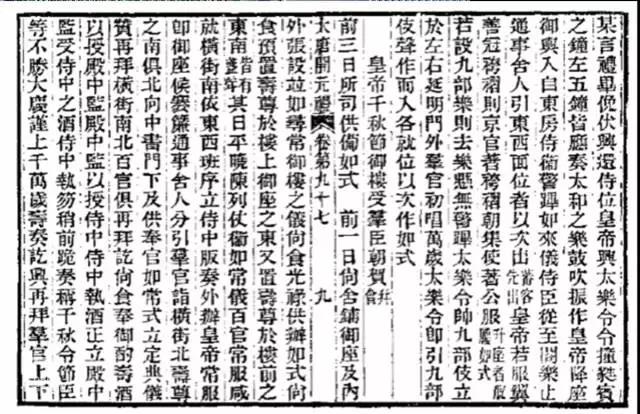 某言禮畢俛伏興還侍位皇帝興太樂令令撞蕤賓
之鐘左五鐘皆應奏太和之樂鼓吹振作皇帝降座
御輿入自東房侍衛警蹕如來儀侍臣從至閤樂止
通事舍人引東西面位者以次出蕃客先出皇帝若服翼
善冠袴褶則京官著袴褶朝集使著公服升座者履如式
若設九部樂則去樂懸無警蹕太樂令帥九部伎立
於左右延明門外羣官初唱萬歲太樂令即引九部
伎聲作而入各就位以次作如式
皇帝千秋節御樓受羣臣朝賀并會
前三日所司供備如式 前一日尚舍鋪御座及內
大唐開元禮 卷第九十七 九
外張設並如尋常御樓之儀尚食光祿供辦如式尚
食預置壽尊於樓上御座之東又置壽尊於樓前之
東南皆有盞其日平曉陳列仗衛如常儀百官常服咸
就橫街南依東西班序立侍中版奏外辦皇帝常服
即御座候褰簾通事舍人分引羣官詣橫街北壽尊
之南俱北向中書門下及供奉官如常式立定典儀
贊再拜橫街南北百官俱再拜訖尚食奉御酌壽酒
以授殿中監殿中監以授侍中侍中執酒正立殿中
監受侍中之酒侍中執笏稍前跪奏稱千秋令節臣
等不勝大慶謹上千萬歲壽奏訖興再拜羣官上下